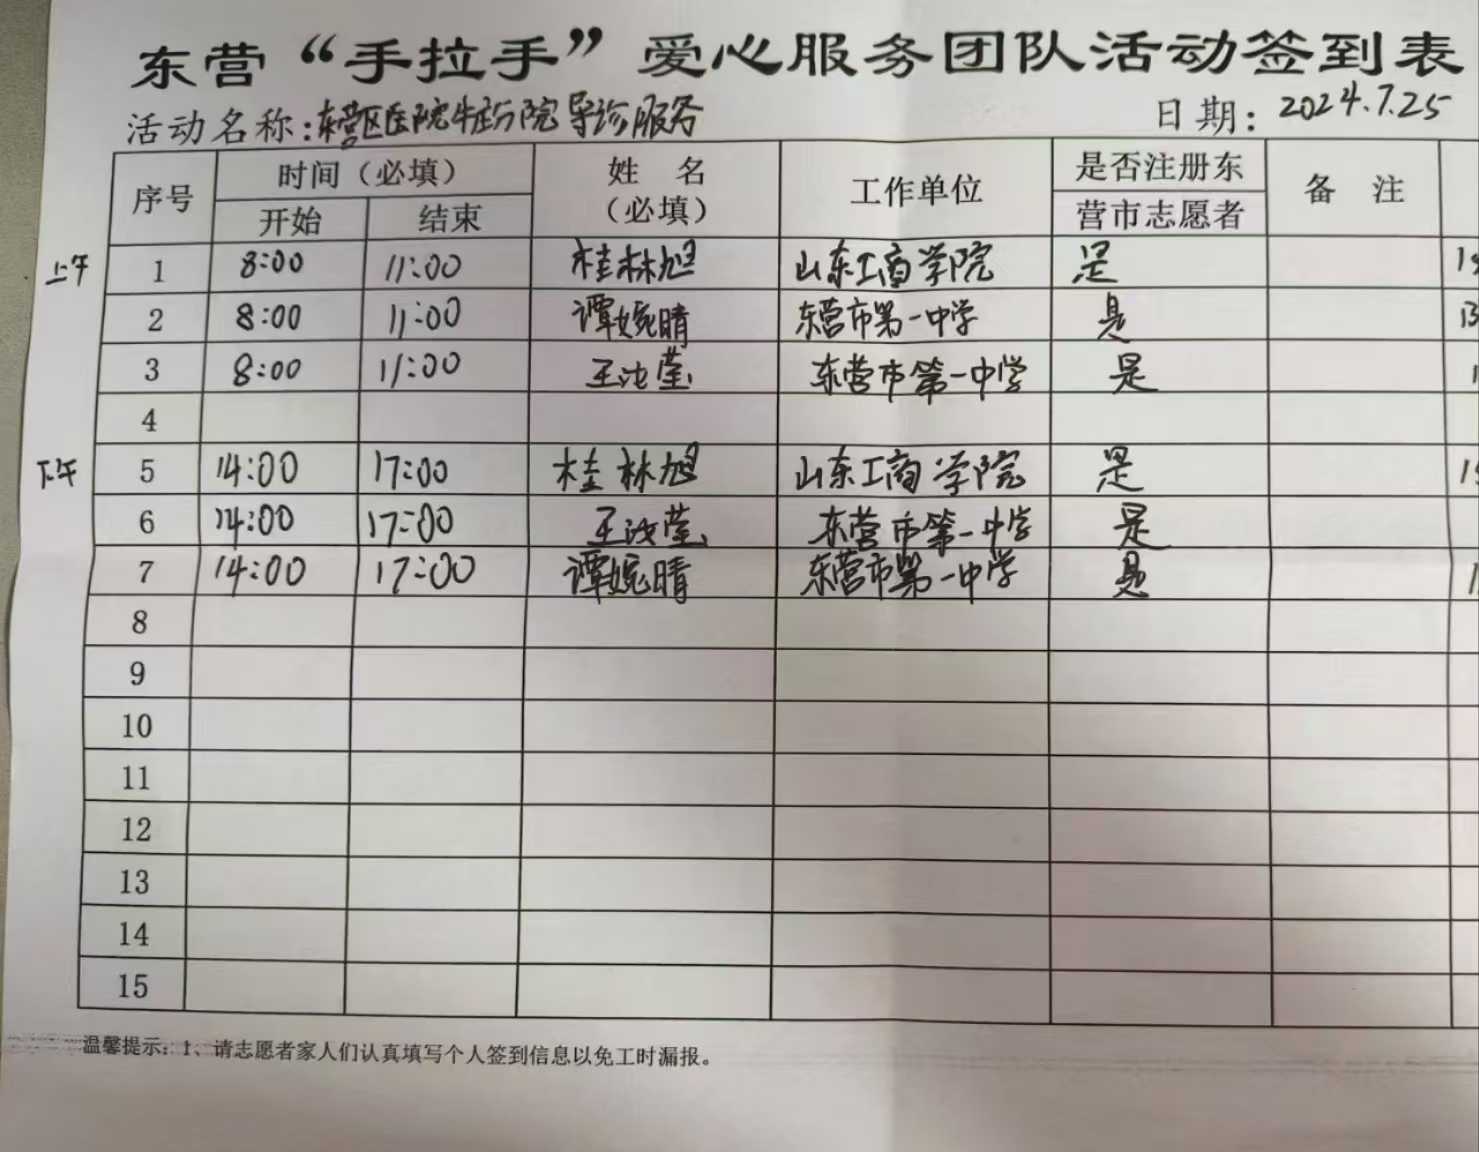 东营“手拉手”爱心服务团队活动签到表
活动名称：东营区医院牛庄分院导诊服务 日期：2024.7.25
序号 时间（必填） 姓 名（必填） 工作单位 是否注册东营市志愿者 备 注
开始 结束
上午 1 8:00 11:00 桂林旭 山东工商学院 是
2 8:00 11:00 谭婉晴 东营市第一中学 是
3 8:00 11:00 王 莹 东营市第一中学 是
4
下午 5 14:00 17:00 桂林旭 山东工商学院 是
6 14:00 17:00 王 莹 东营市第一中学 是
7 14:00 17:00 谭婉晴 东营市第一中学 是
8
9
10
11
12
13
14
15
温馨提示：1、请志愿者家人们认真填写个人签到信息以免工时漏报。